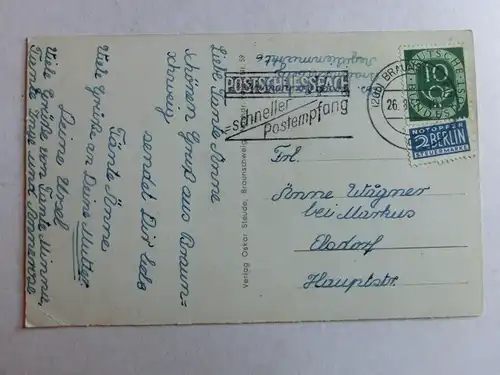 Liebe Tante Änne
schönen Gruß aus Braun=
schweig sendet Dir liebe
Tante Änne
Viele Grüße an Deine Mutter
Deine Ursel
Viele Grüße von Tante Minna,
Tante Irene und Annerose
Verlag Oskar Steude, Braunschweig
59
POSTSCHLIESSFACH
=schneller
Postempfang
(20b) BRAU
26.8
DEUTSCHE BUNDESPOST
10
NOTOPFER
2 BERLIN
STEUERMARKE
Frl.
Änne Wagner
bei Markus
Elsdorf
Hauptstr.